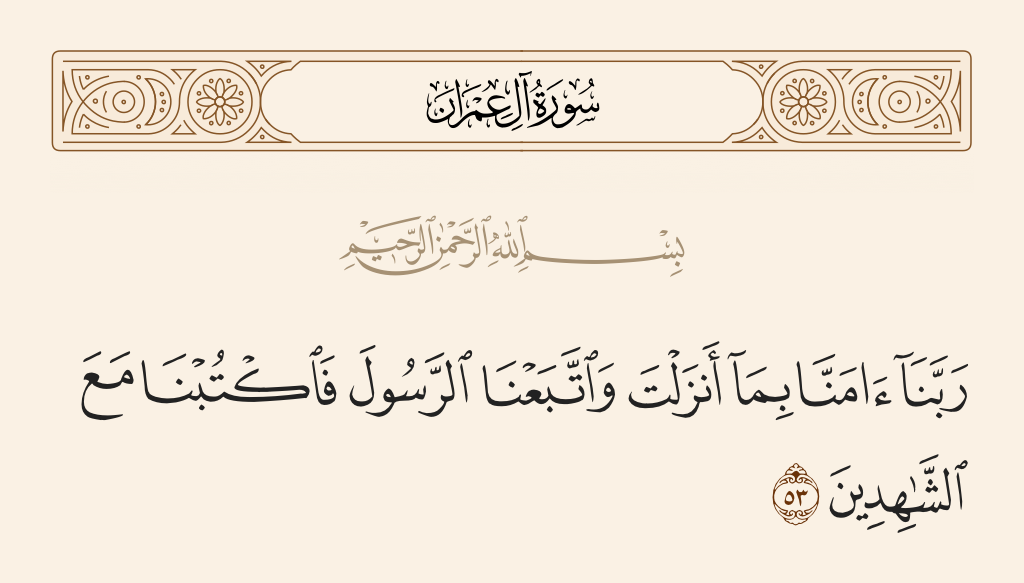 سُورَةُ آلِ عِمْرَانَ
بِسْمِ ٱللَّهِ ٱلرَّحْمَٰنِ ٱلرَّحِيمِ
رَبَّنَآ ءَامَنَّا بِمَآ أَنزَلْتَ وَٱتَّبَعْنَا ٱلرَّسُولَ فَٱكْتُبْنَا مَعَ
ٱلشَّٰهِدِينَ ٥٣